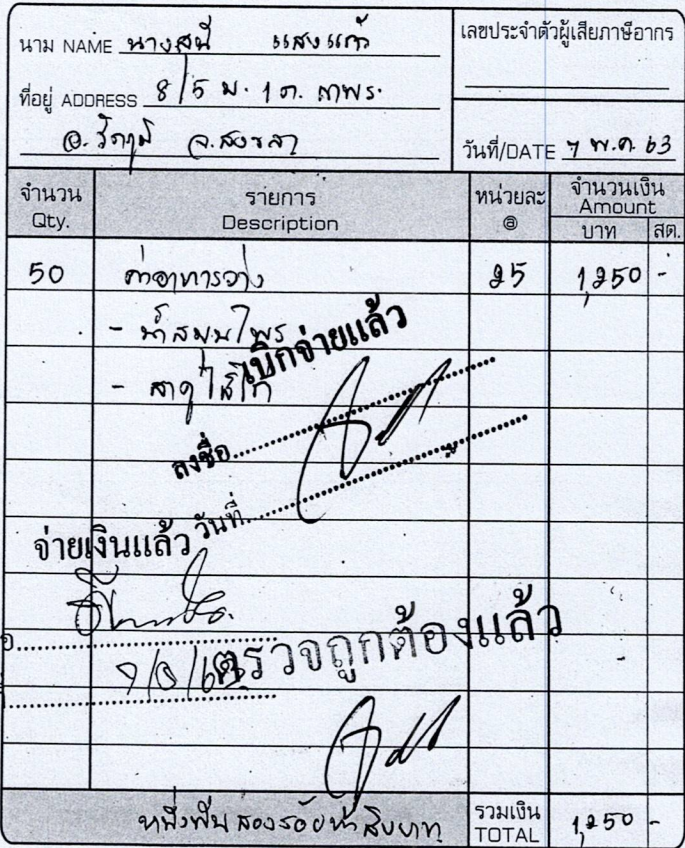 นาม NAME นางสุนี แสงแก้ว
เลขประจำตัวผู้เสียภาษีอากร
ที่อยู่ ADDRESS 8/5 ม. 1 ต.
อ. รัตภูมิ จ. สงขลา
วันที่/DATE 7 พ.ค. 63
จำนวน Qty. รายการ Description หน่วยละ @ จำนวนเงิน Amount บาท สต.
50 ค่าอาหารว่าง 25 1,250 -
- น้ำสมุนไพร
- สาคูไส้ไก่
เบิกจ่ายแล้ว
ลงชื่อ
วันที่
จ่ายเงินแล้ว
ตรวจถูกต้องแล้ว
หนึ่งพันสองร้อยห้าสิบบาท รวมเงิน TOTAL 1,250 -